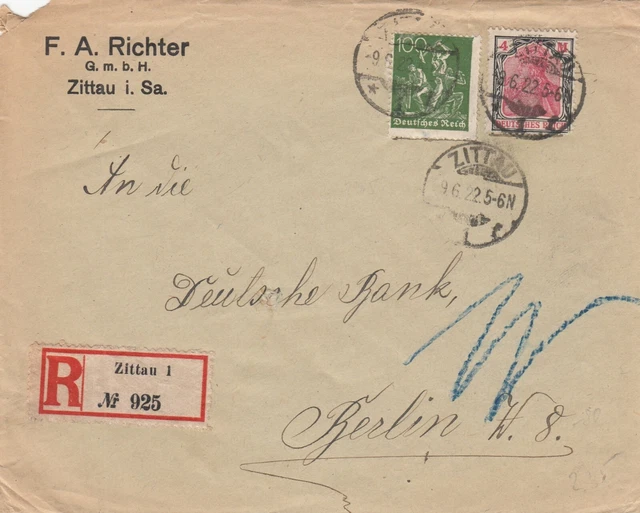 F. A. Richter
G. m. b. H.
Zittau i. Sa.
100
Deutsches Reich
4 M
DEUTSCHES REICH
9.6.22.5-6N
ZITTAU
9.6.22.5-6N
An die
Deutsche Bank,
R
Zittau 1
№ 925
Berlin W. 8.